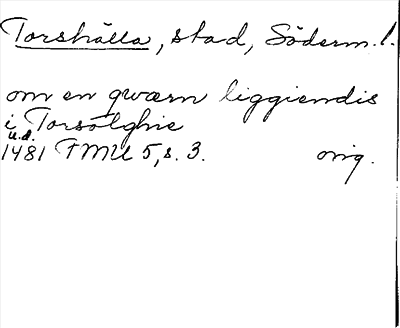 Torshälla, stad, Söderm.l.
om en qwærn liggiendis
i Torsølghie
u.d.
1481 FMU 5, s. 3. orig.